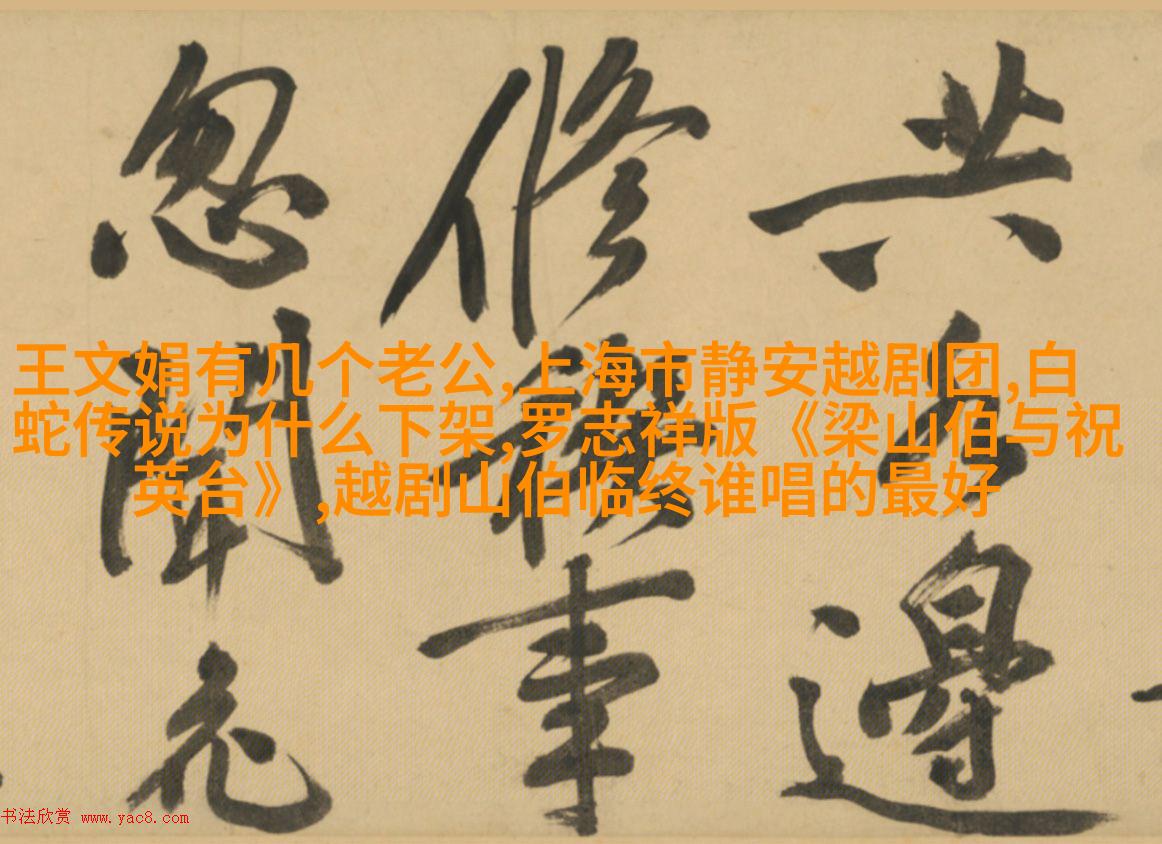 王文娟有几个老公,上海市静安越剧团,白
蛇传说为什么下架,罗志祥版《梁山伯与祝
英台》,越剧山伯临终谁唱的最好
共邊
修禊事
忽聞
书法欣赏 www.yac8.com